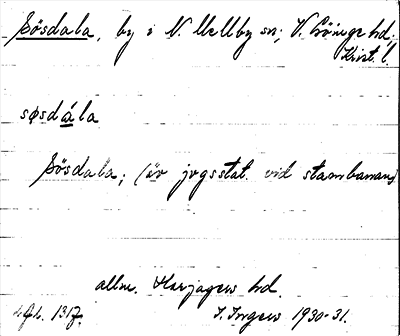 Sösdala, by i N. Mellby sn; V. Göinge hd;
Krist. l.
søsdála
Sösdala; (är jvgsstat. vid stambanan)
allm. Harjagers hd.
1317.
I. Ingers 1930-31.